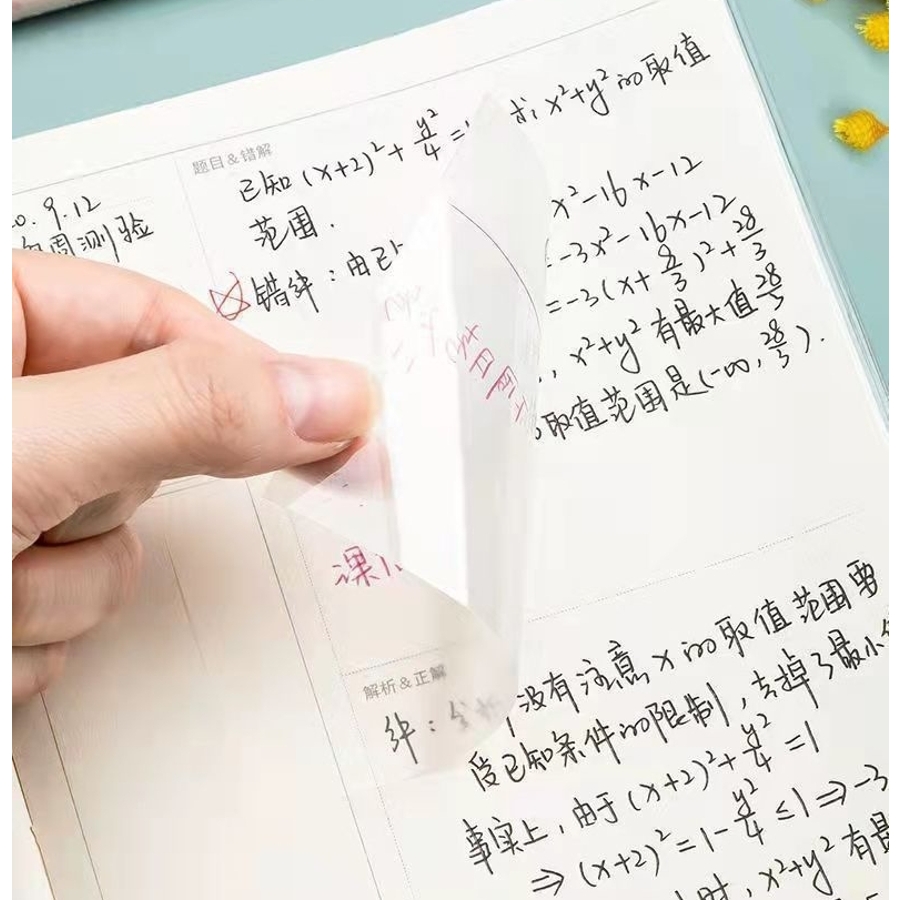 9.12
周测验
题目&错解
已知 (x+2)²+y²/4=1 求 x²+y² 的取值
范围.
错解:由已
x²-16x-12
=-3x²-16x-12
=-3(x+8/3)²+28/3
x²+y² 有最大值28/3
取值范围是(-∞, 28/3).
课
解析&正解
解:
没有注意 x 的取值范围要
受已知条件的限制,去掉了最小
事实上,由于 (x+2)²+y²/4=1
⇒(x+2)²=1-y²/4≤1⇒-3
时, x²+y² 有最